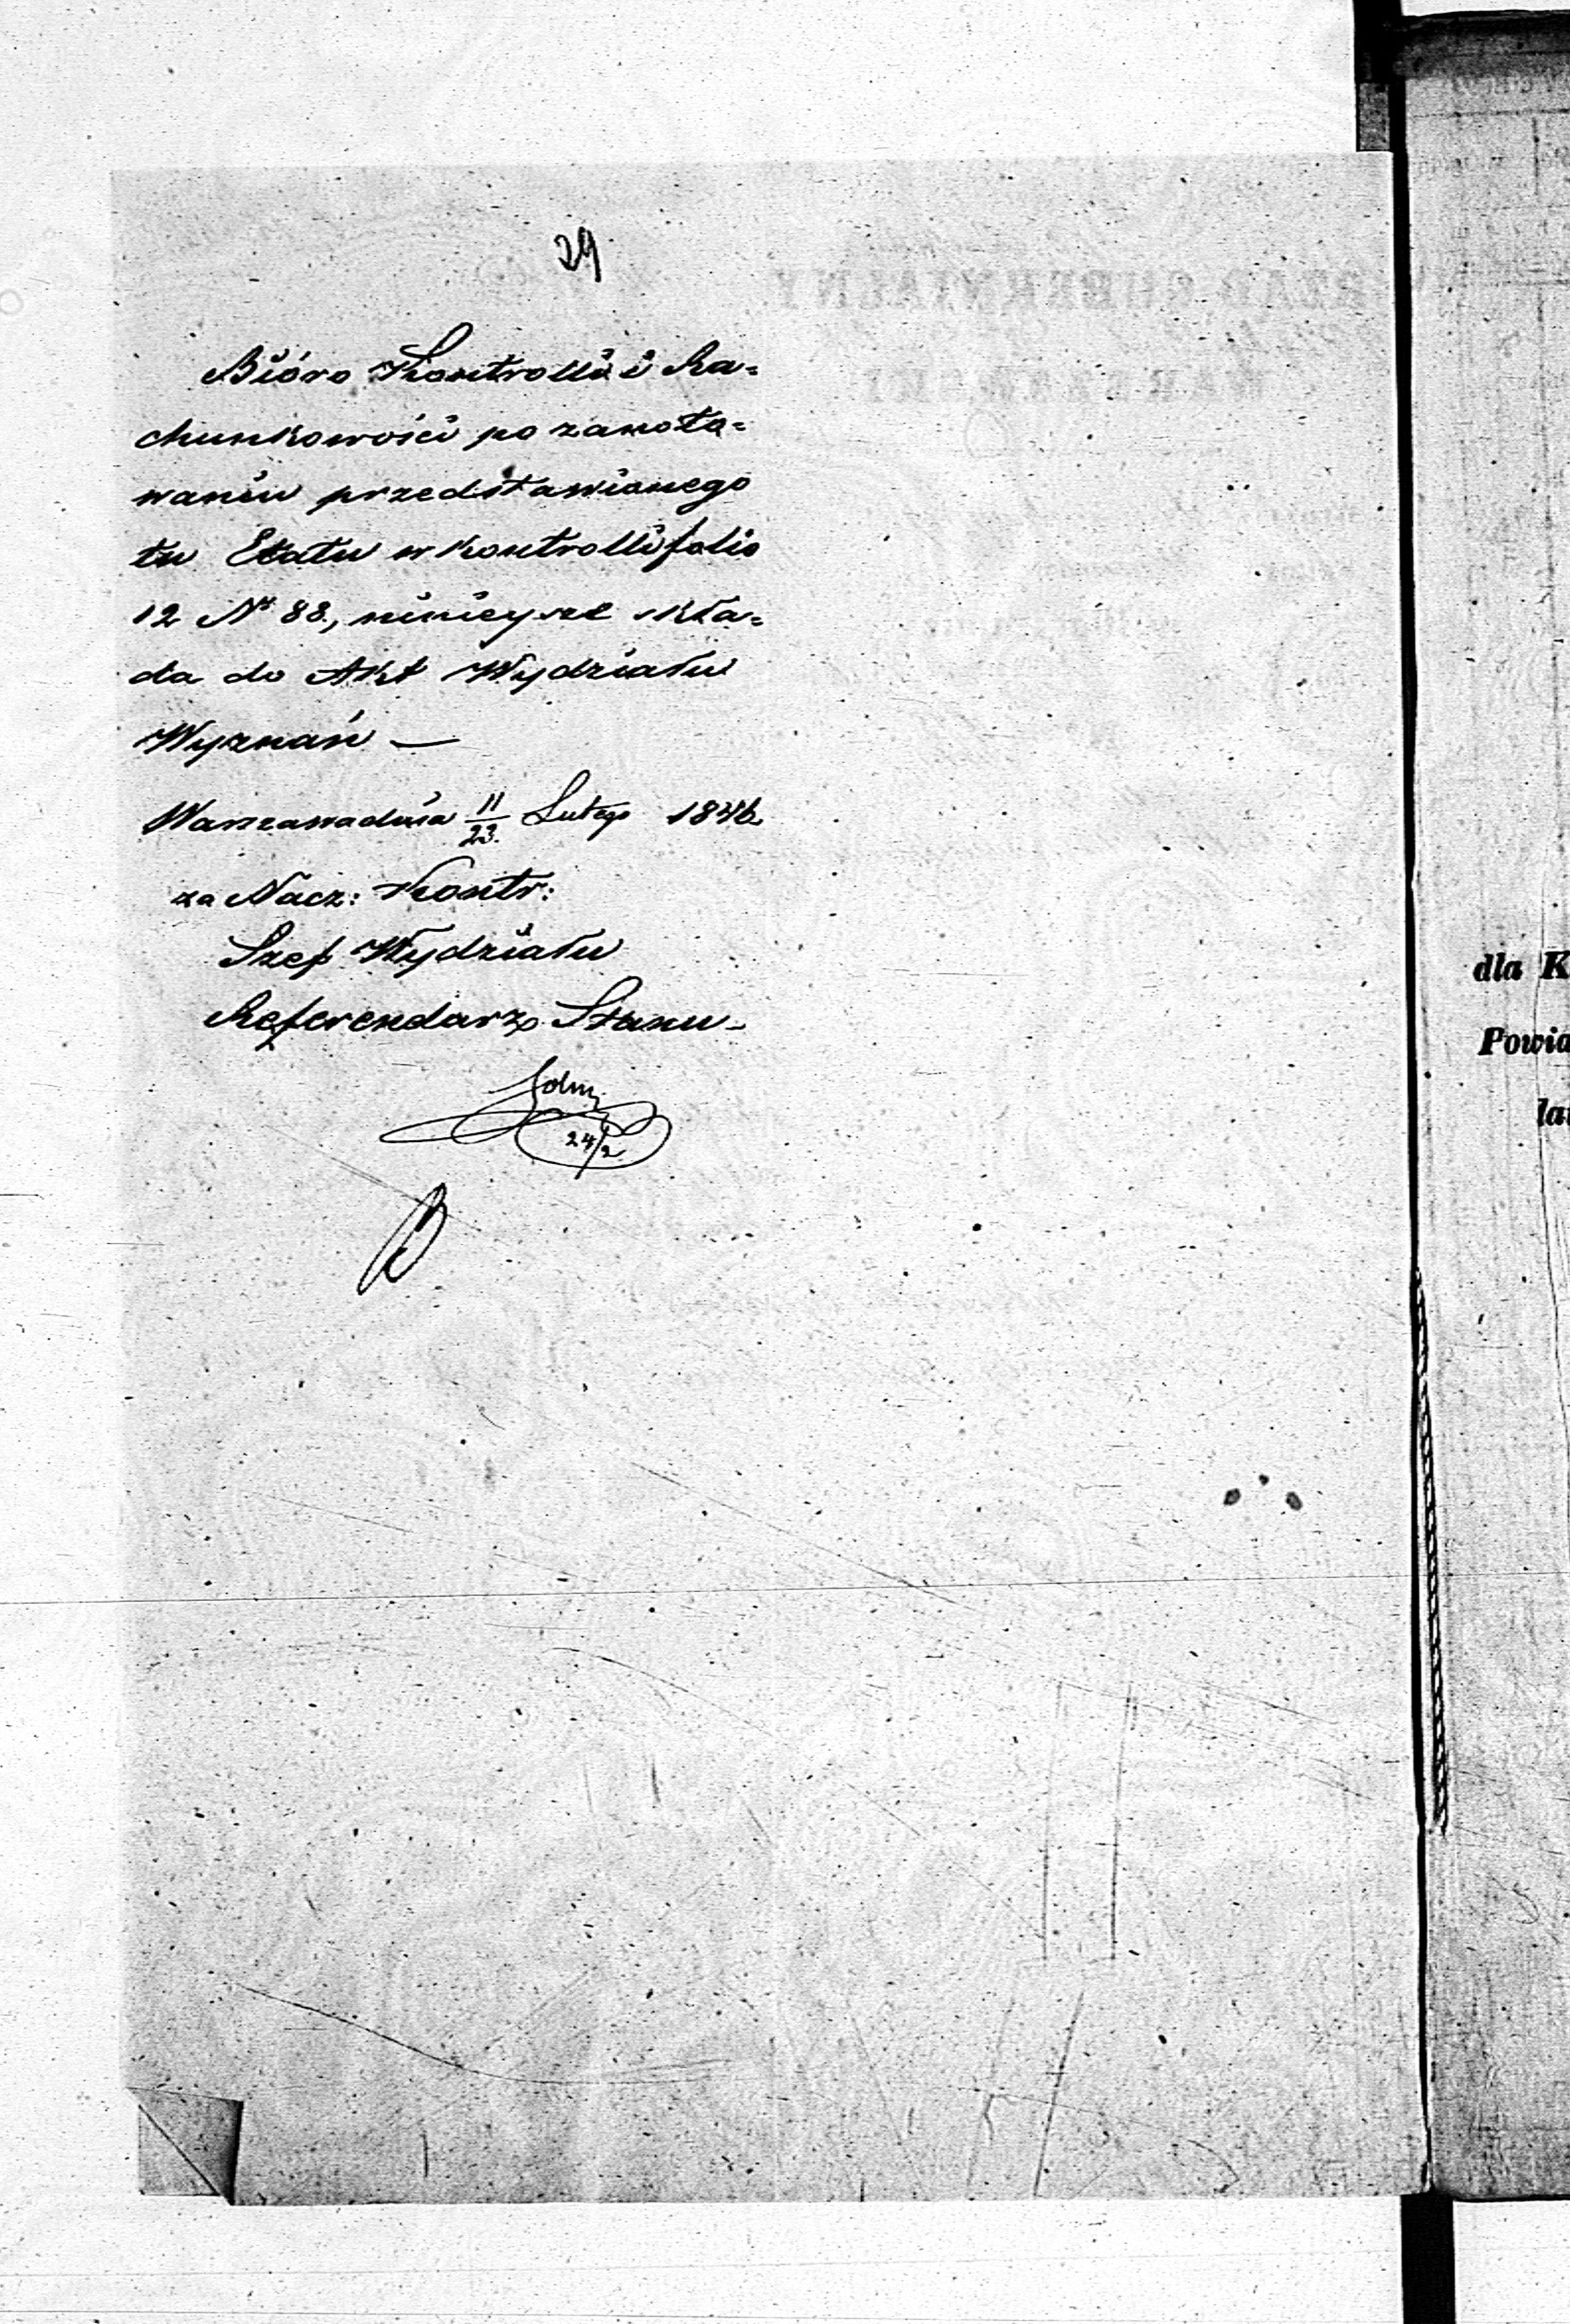 29
Bióro Kontrolli i Ra=
chunkowości po zanoto=
waniu przedstawionego
tu Etatu w kontrolli folio
12 Nº 88., nинieysze skła=
da do Akt Wydziału
Wyznań —
Warszawa dnia 11/23. Lutego 1846
za Nacz: Kontr:
Szef Wydziału
Referendarz Stanu
24/2
dla K
Powia